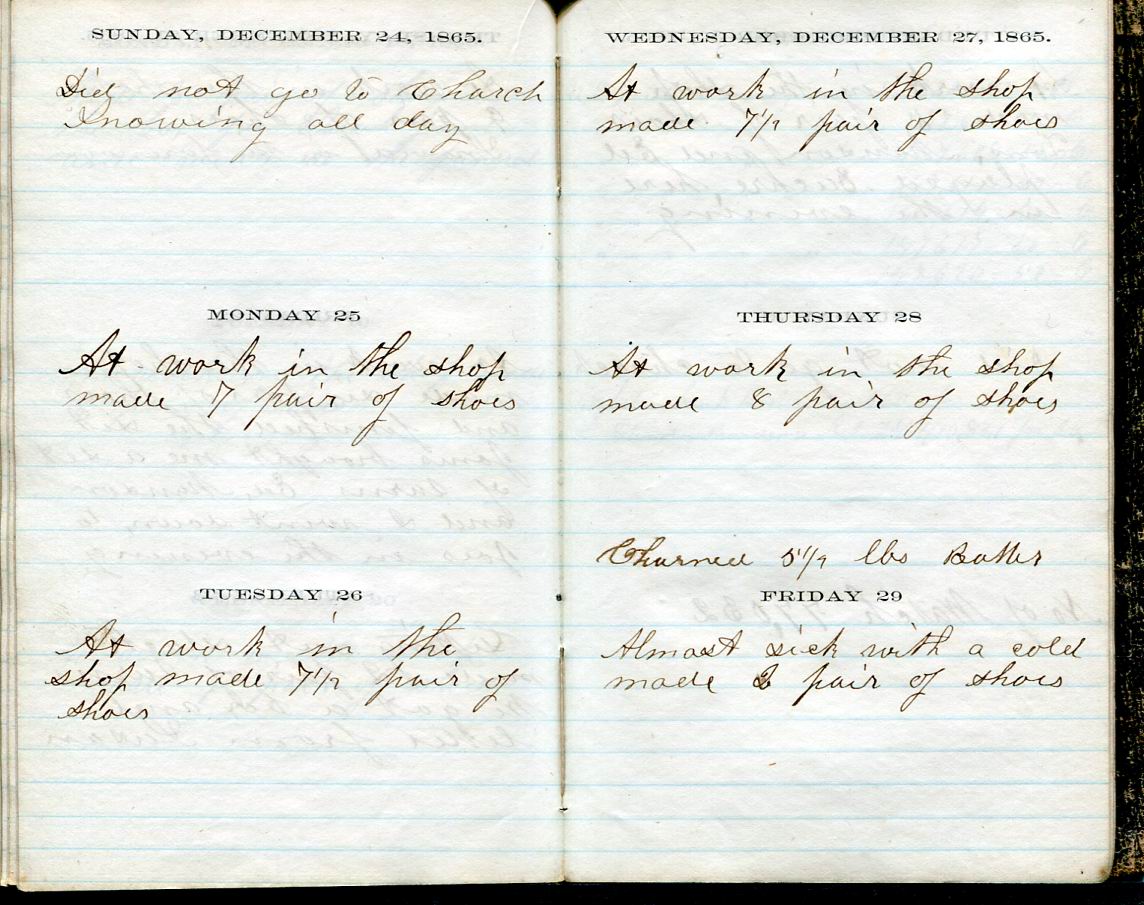 SUNDAY, DECEMBER 24, 1865.
Did not go to Church
Snowing all day
MONDAY 25
At work in the shop
made 7 pair of shoes
TUESDAY 26
At work in the
shop made 7 1/2 pair of
shoes
WEDNESDAY, DECEMBER 27, 1865.
At work in the shop
made 7 1/2 pair of shoes
THURSDAY 28
At work in the shop
made 8 pair of shoes
Churned 5 1/2 lbs Butter
FRIDAY 29
Almost sick with a cold
made 2 pair of shoes